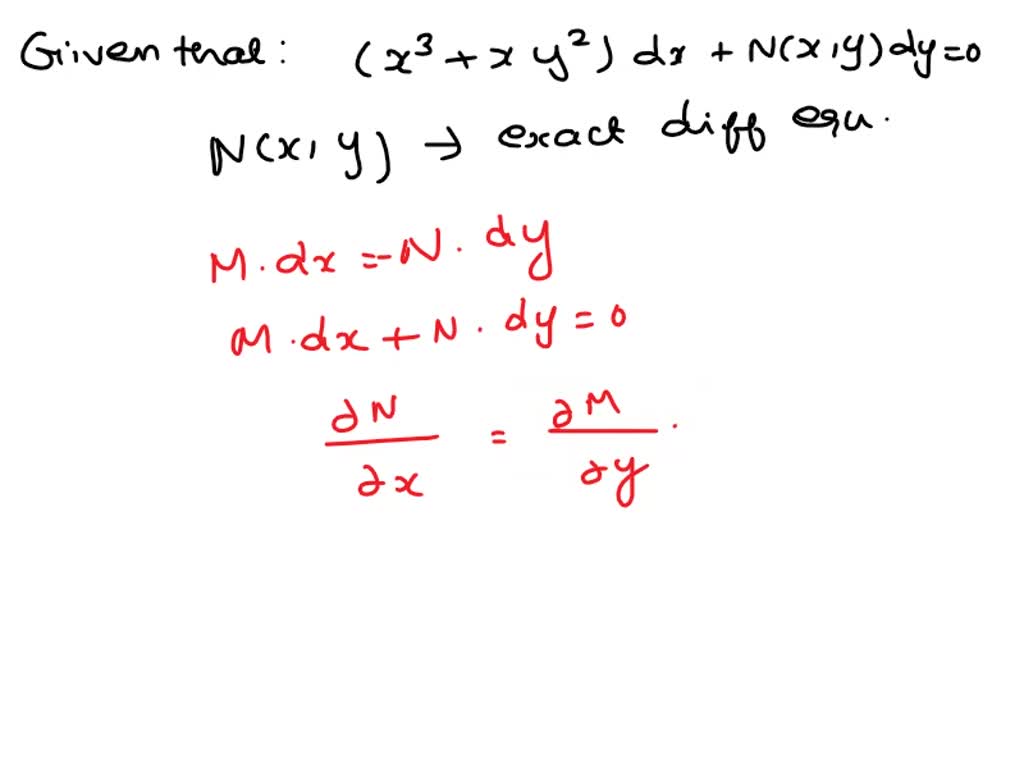 Given that: (x³ + x y²) dx + N(x,y) dy = 0
N(x, y) → exact diff equ.
M · dx = -N · dy
M · dx + N · dy = 0
∂N/∂x = ∂M/∂y ·